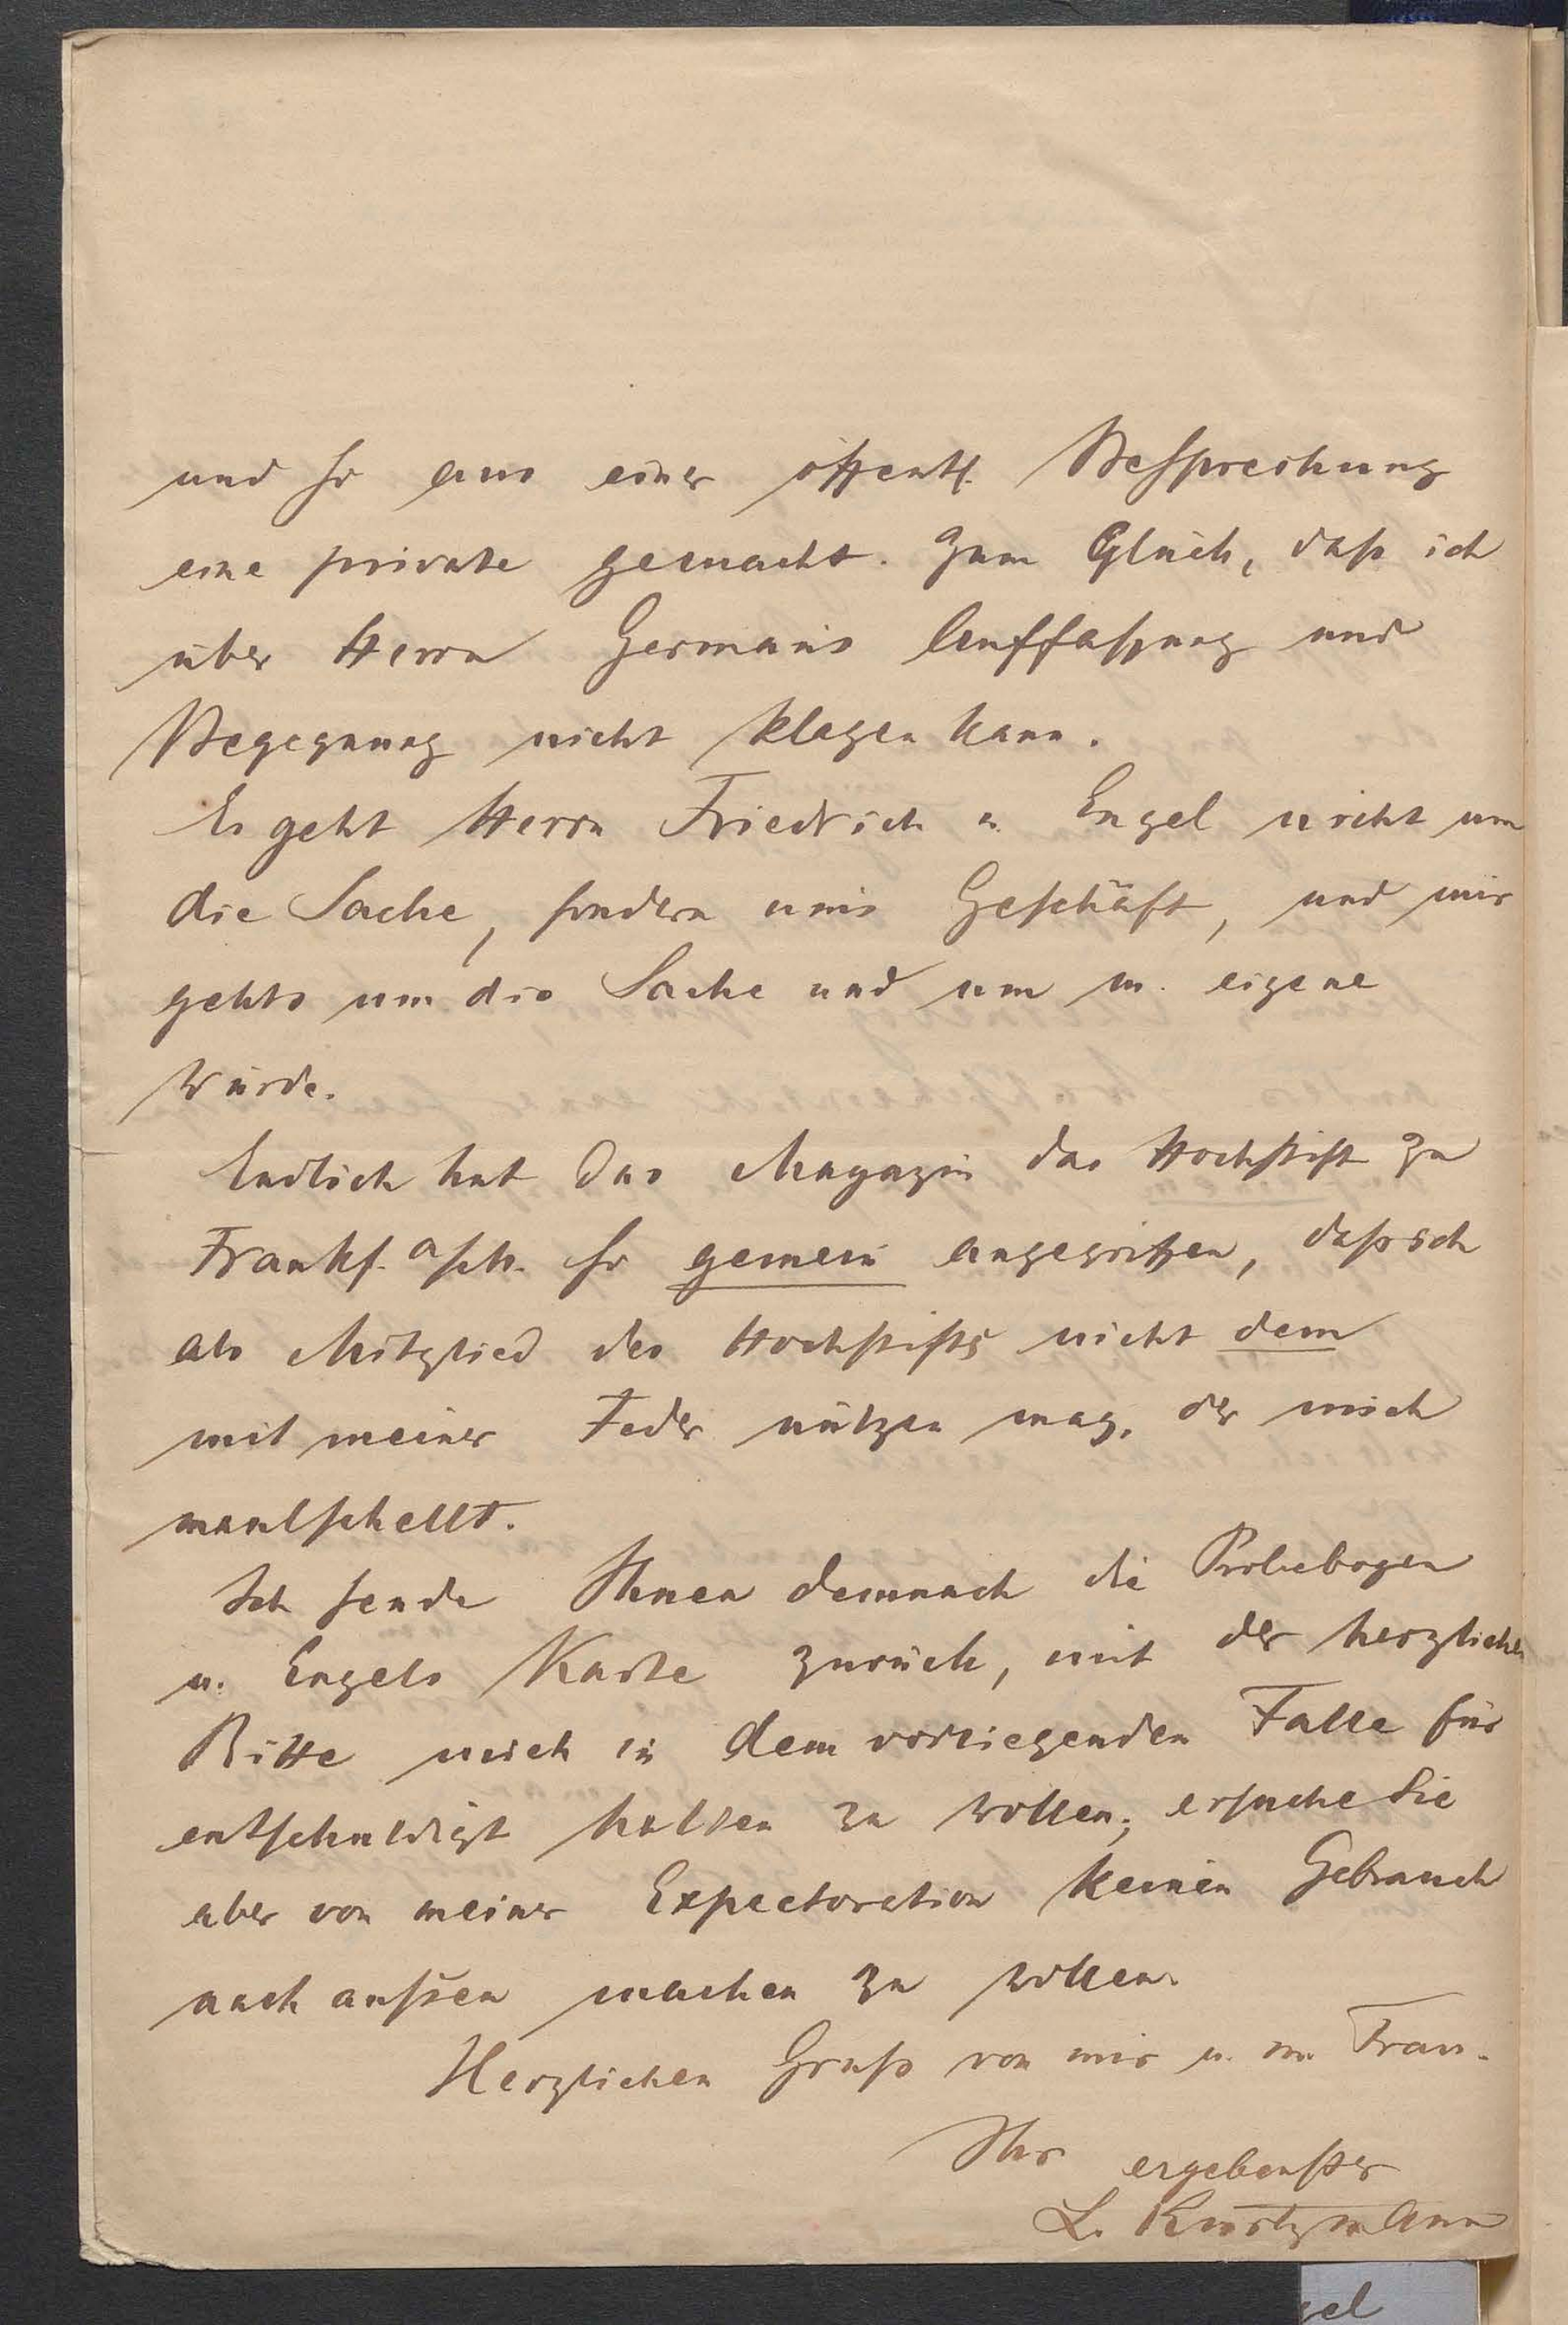 und so aus einer öffentl. Besprechung
eine private gemacht. Zum Glück, daß ich
über Herrn Germans Auffaßung und
Begegnung nicht klagen kann.
Es geht Herrn Friedrich u. Engel nicht um
die Sache, sondern ums Geschäft, und mir
gehts um die Sache und um m. eigene
Würde.
Endlich hat das Magazin das Hochstift zu
Frankf. so gemein angegriffen, daß ich
als Mitglied des Hochstifts nicht dem
mit meiner Feder nützen mag, der mich
maulschellt.
Ich sende Ihnen demnach die Probebogen
u. Engels Karte zurück, mit der herzlichen
Bitte mich in dem vorliegenden Falle für
entschuldigt halten zu wollen; ersuche Sie
aber von meiner Expectoration keinen Gebrauch
nach außen machen zu wollen.
Herzlichen Gruß von mir u. m. Frau.
Ihr ergebenster
L. Kurtzmann